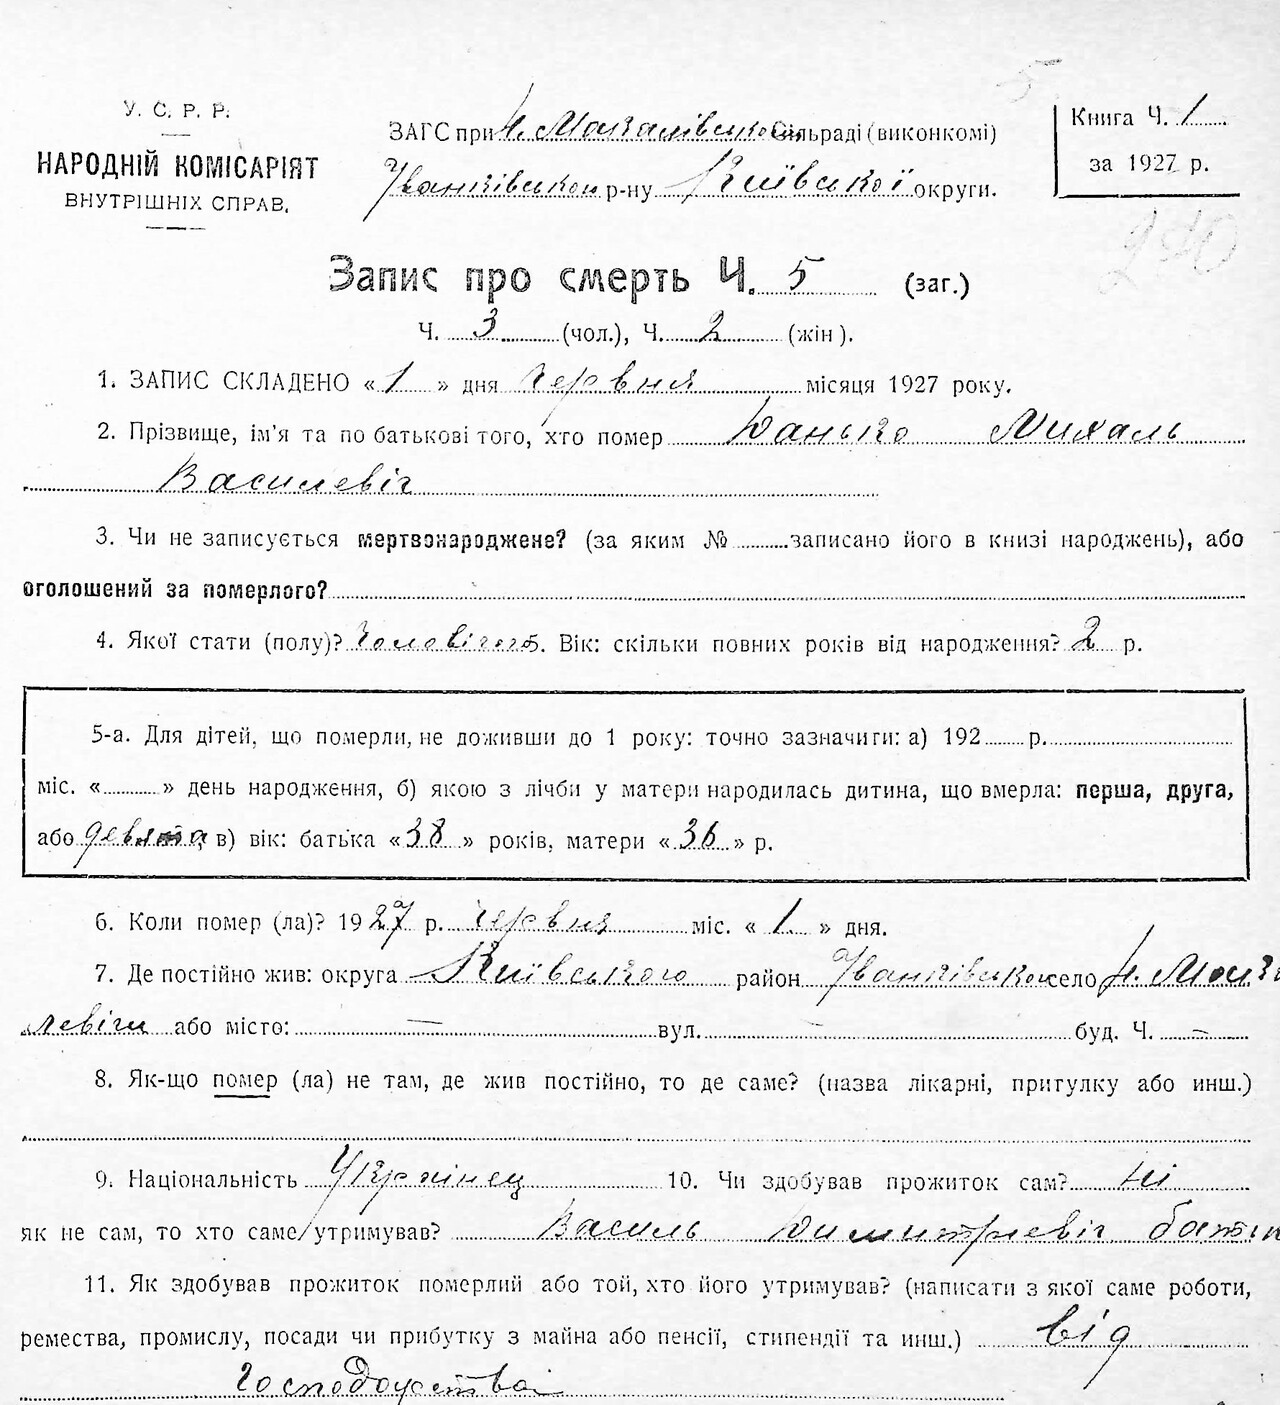 У. С. Р. Р.
НАРОДНІЙ КОМІСАРІЯТ
ВНУТРІШНІХ СПРАВ.
ЗАГС при Н. Макалівській сільраді (виконкомі)
Іванківського р-ну Київської округи.
Книга Ч. 1
за 1927 р.
Запис про смерть Ч. 5 (заг.)
Ч. 3 (чол.), Ч. 2 (жін).
1. ЗАПИС СКЛАДЕНО «1» дня червня місяця 1927 року.
2. Прізвище, ім'я та по батькові того, хто помер Данько Михаль
Василевіч
3. Чи не записується мертвонароджене? (за яким № записано його в книзі народжень), або
оголошений за померлого?
4. Якої стати (полу)? Чоловічого. Вік: скільки повних років від народження? 2 р.
5-а. Для дітей, що померли, не доживши до 1 року: точно зазначити: а) 192 р.
міс. « » день народження, б) якою з лічби у матери народилась дитина, що вмерла: перша, друга,
або девята, в) вік: батька «38» років, матери «36» р.
6. Коли помер (ла)? 1927 р. червня міс. «1.» дня.
7. Де постійно жив: округа Київського район Іванківського село Н. Мака
левічи або місто: — вул. — буд. Ч. —
8. Як-що помер (ла) не там, де жив постійно, то де саме? (назва лікарні, притулку або инш.)
9. Національність Українец 10. Чи здобував прожиток сам? Ні
як не сам, то хто саме утримував? Василь Димитрієвіч батьк
11. Як здобував прожиток померлий або той, хто його утримував? (написати з якої саме роботи,
ремества, промислу, посади чи прибутку з майна або пенсії, стипендії та инш.) від
господарства